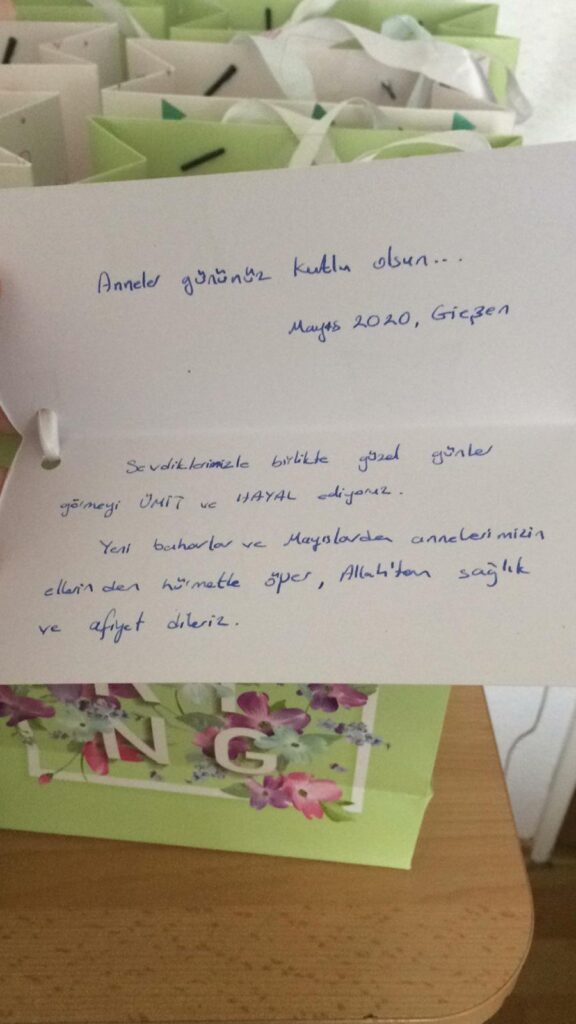 Anneler gününüz kutlu olsun...
Mayıs 2020, Gießen
Sevdiklerimizle birlikte güzel günler
görmeyi ÜMİT ve HAYAL ediyoruz.
Yeni baharlar ve Mayıslarda annelerimizin
ellerinden hürmetle öper, Allah'tan sağlık
ve afiyet dileriz.
N G